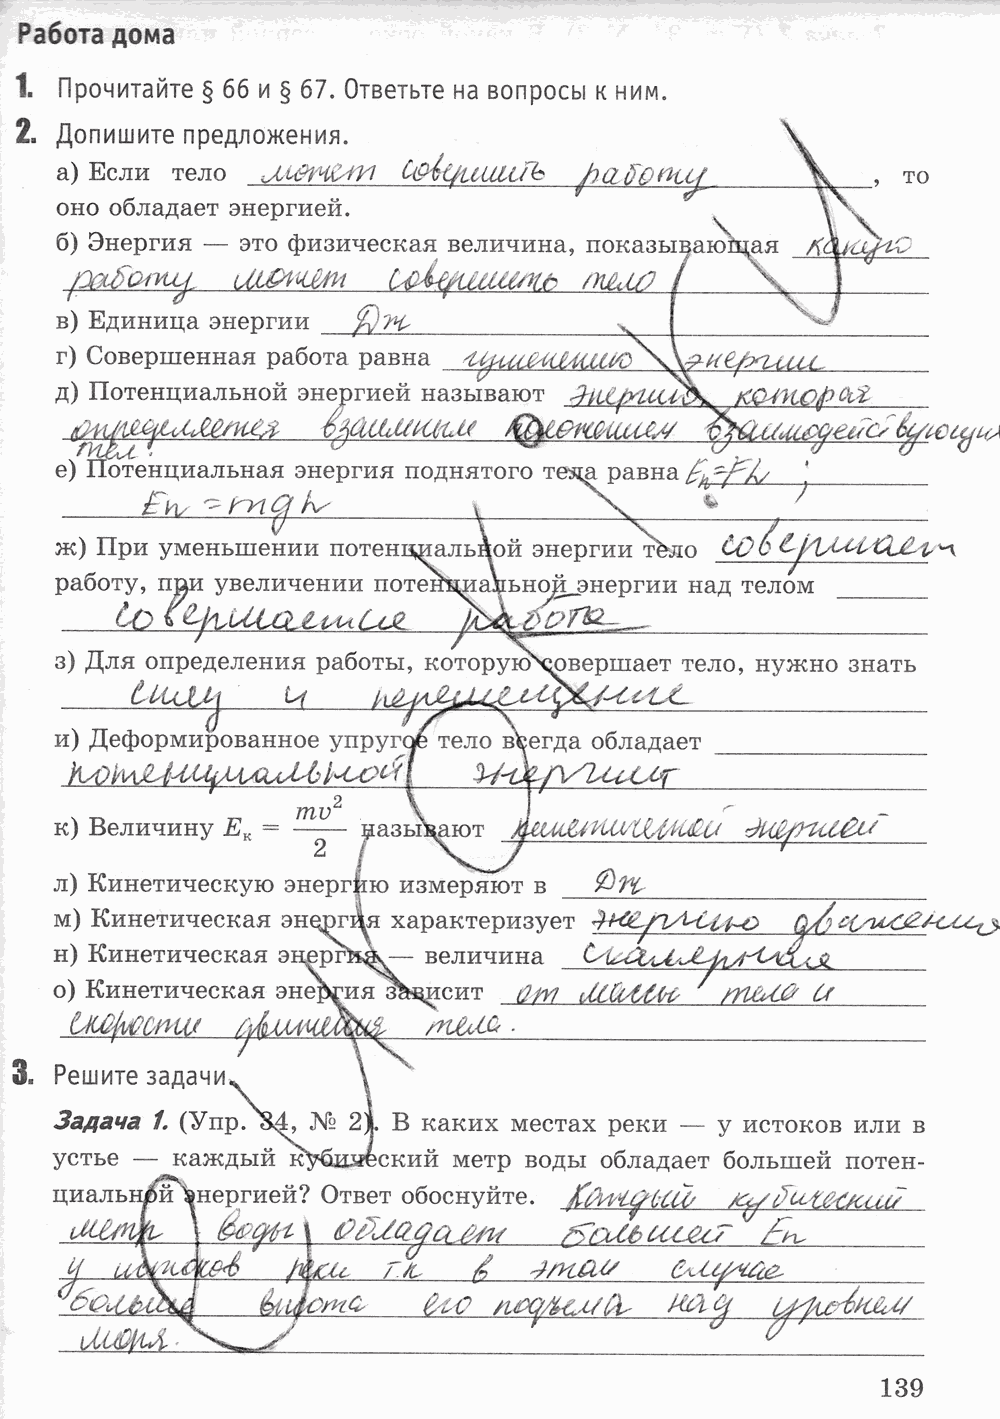 Работа дома
1. Прочитайте § 66 и § 67. Ответьте на вопросы к ним.
2. Допишите предложения.
а) Если тело может совершить работу, то
оно обладает энергией.
б) Энергия — это физическая величина, показывающая какую
работу может совершить тело
в) Единица энергии Дж
г) Совершенная работа равна изменению энергии
д) Потенциальной энергией называют энергию, которая
определяется взаимным положением взаимодействующих
тел.
е) Потенциальная энергия поднятого тела равна Eп=Fh ;
Eп = mgh
ж) При уменьшении потенциальной энергии тело совершает
работу, при увеличении потенциальной энергии над телом
совершается работа
з) Для определения работы, которую совершает тело, нужно знать
силу и перемещение
и) Деформированное упругое тело всегда обладает
потенциальной энергией
к) Величину Eк = mv²/2 называют кинетической энергией
л) Кинетическую энергию измеряют в Дж
м) Кинетическая энергия характеризует энергию движения
н) Кинетическая энергия — величина скалярная
о) Кинетическая энергия зависит от массы тела и
скорости движения тела.
3. Решите задачи.
Задача 1. (Упр. 34, № 2). В каких местах реки — у истоков или в
устье — каждый кубический метр воды обладает большей потен-
циальной энергией? Ответ обоснуйте. Каждый кубический
метр воды обладает большей Eп
у истоков реки т.к в этом случае
больше высота его подъема над уровнем
моря.
139